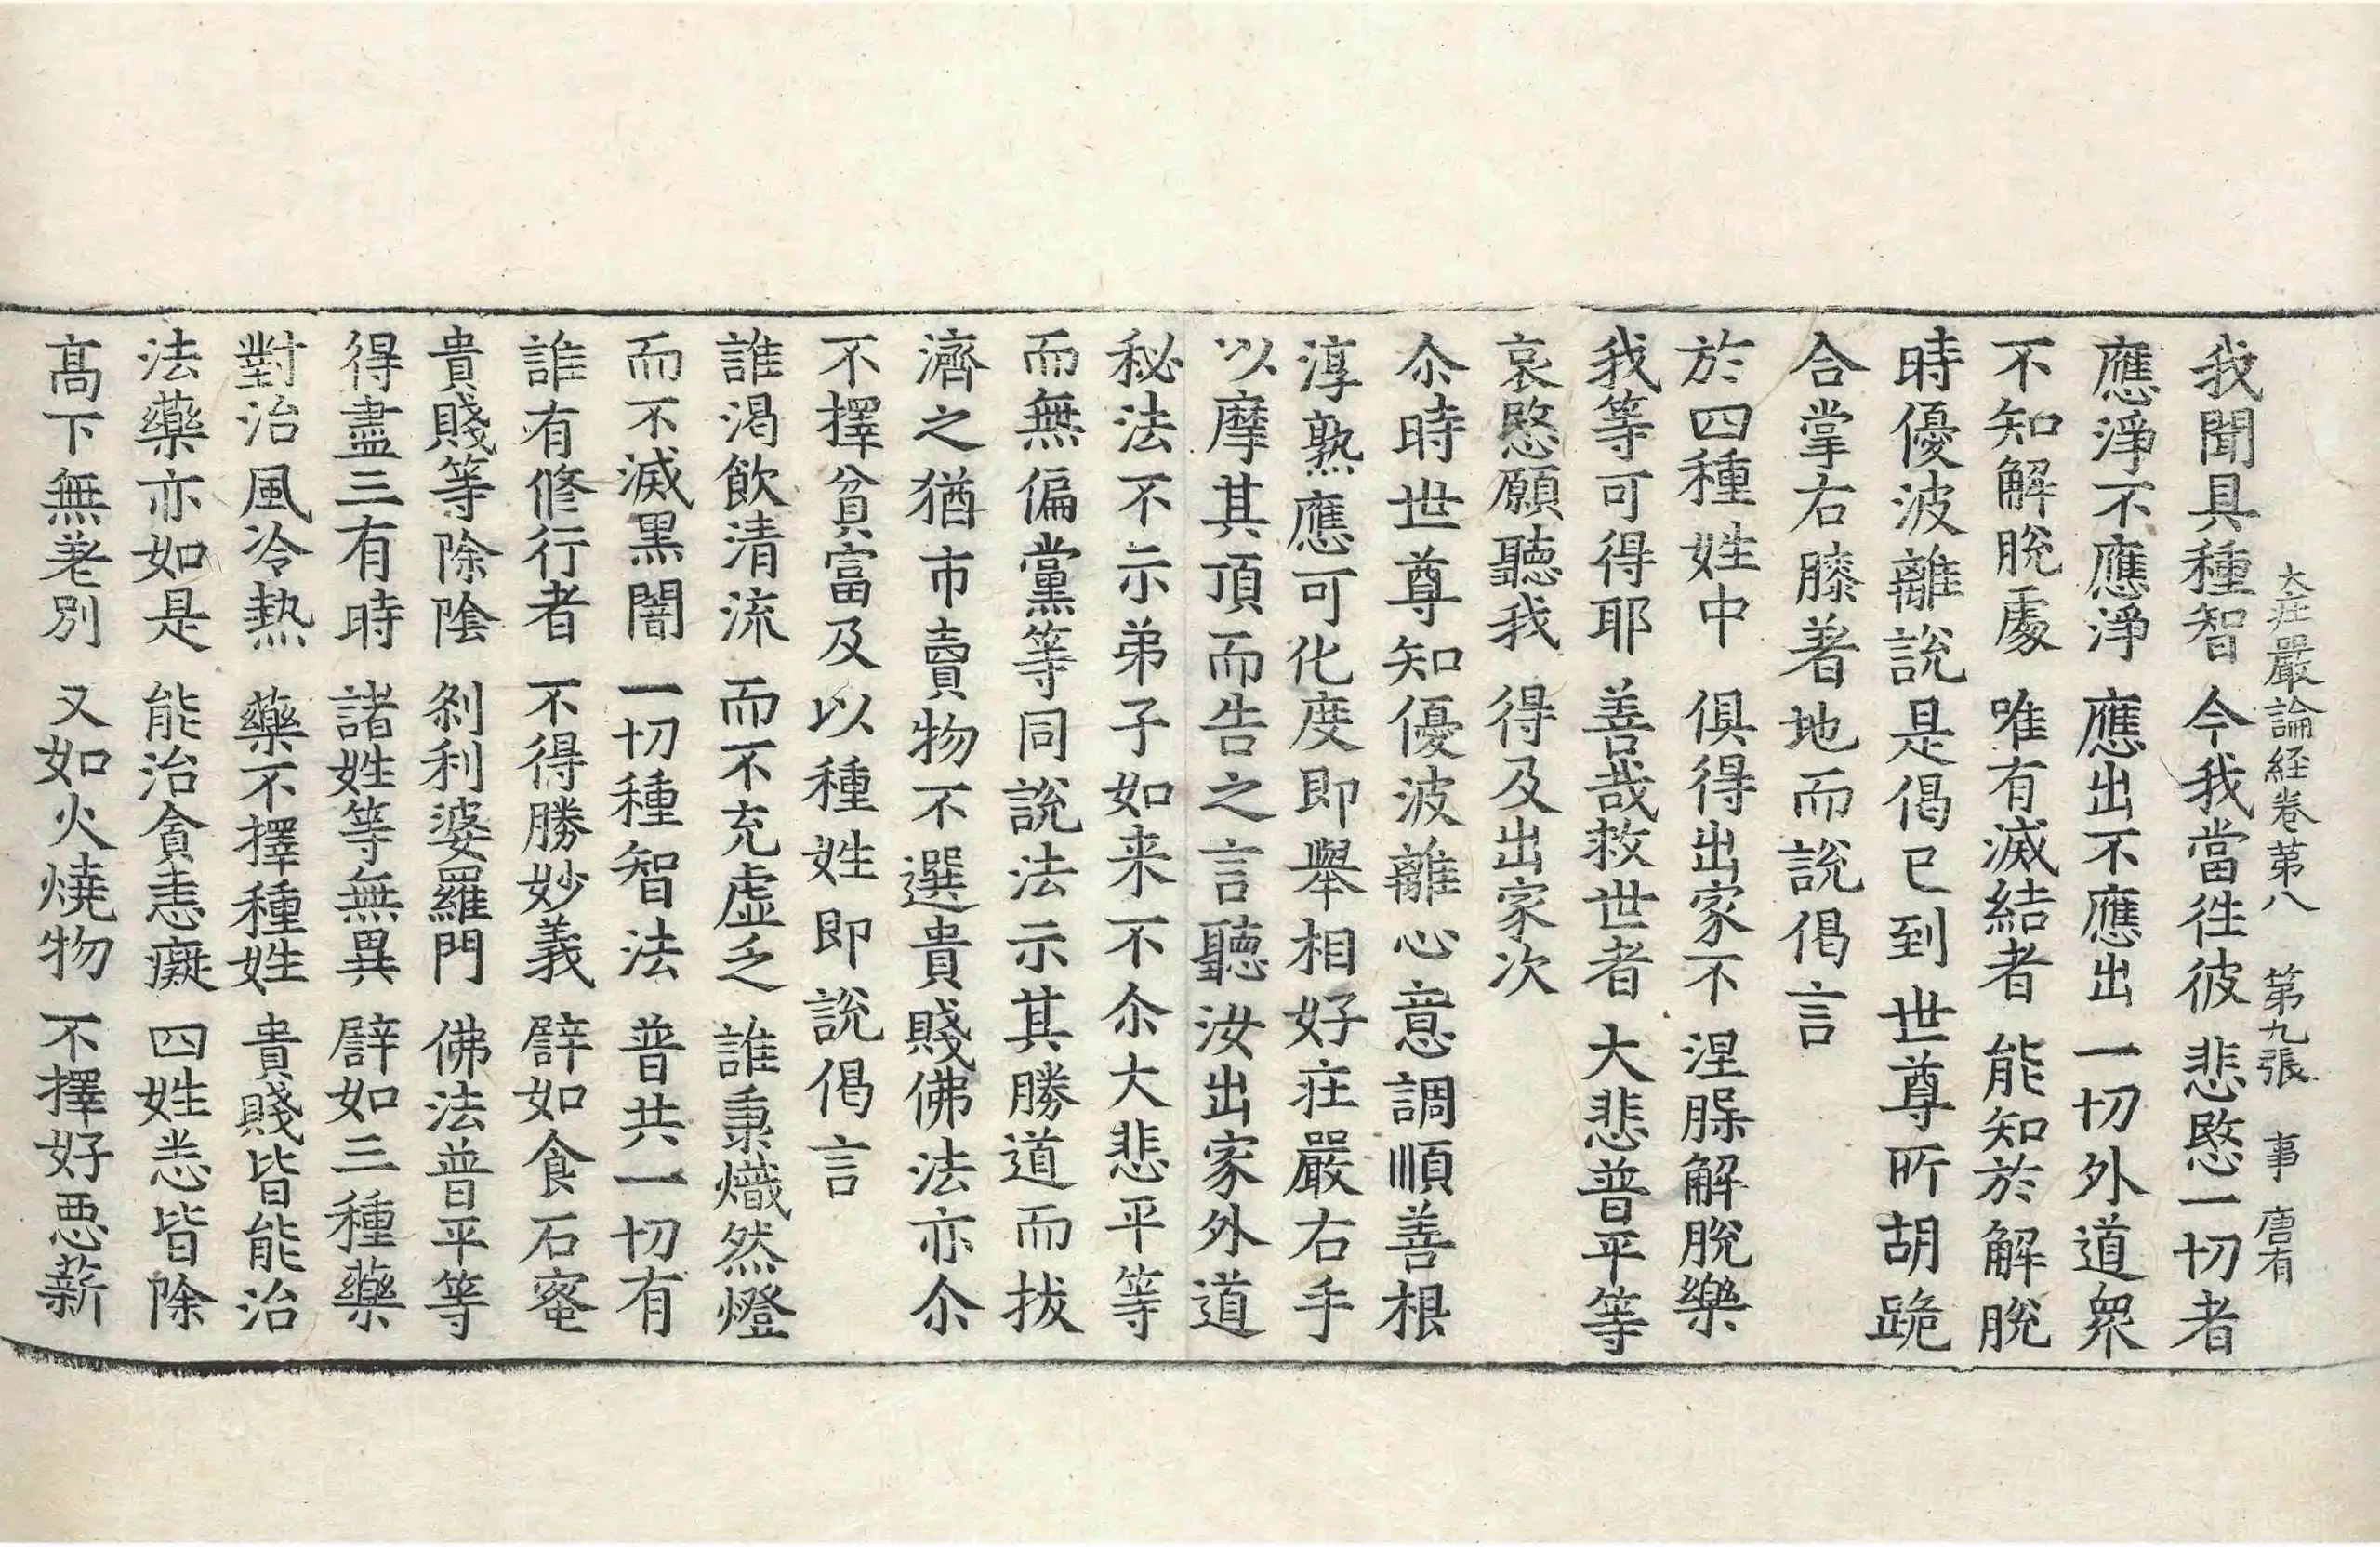 大莊嚴論経卷第八　第九張　事　唐有
我聞具種智　今我當徃彼　悲愍一切者
應淨不應淨　應出不應出　一切外道衆
不知解脫處　唯有滅結者　能知於解脫
時優波離說是偈已到世尊所胡跪
合掌右膝著地而說偈言
於四種姓中　俱得出家不　涅槃解脫樂
我等可得耶　善哉救世者　大悲普平等
哀愍願聽我　得及出家次
尒時世尊知優波離心意調順善根
淳熟應可化度即舉相好莊嚴右手
以摩其頂而告之言聽汝出家外道
秘法不示弟子如来不尒大悲平等
而無偏黨等同說法示其勝道而拔
濟之猶市賣物不選貴賤佛法亦尒
不擇貧富及以種姓即說偈言
誰渴飲清流　而不充虛乏　誰秉熾然燈
而不滅黑闇　一切種智法　普共一切有
誰有修行者　不得勝妙義　譬如食石蜜
貴賤等除陰　剎利婆羅門　佛法普平等
得盡三有時　諸姓等無異　譬如三種藥
對治風冷熱　藥不擇種姓　貴賤皆能治
法藥亦如是　能治貪恚癡　四姓悉皆除
髙下無差別　又如火燒物　不擇好惡薪